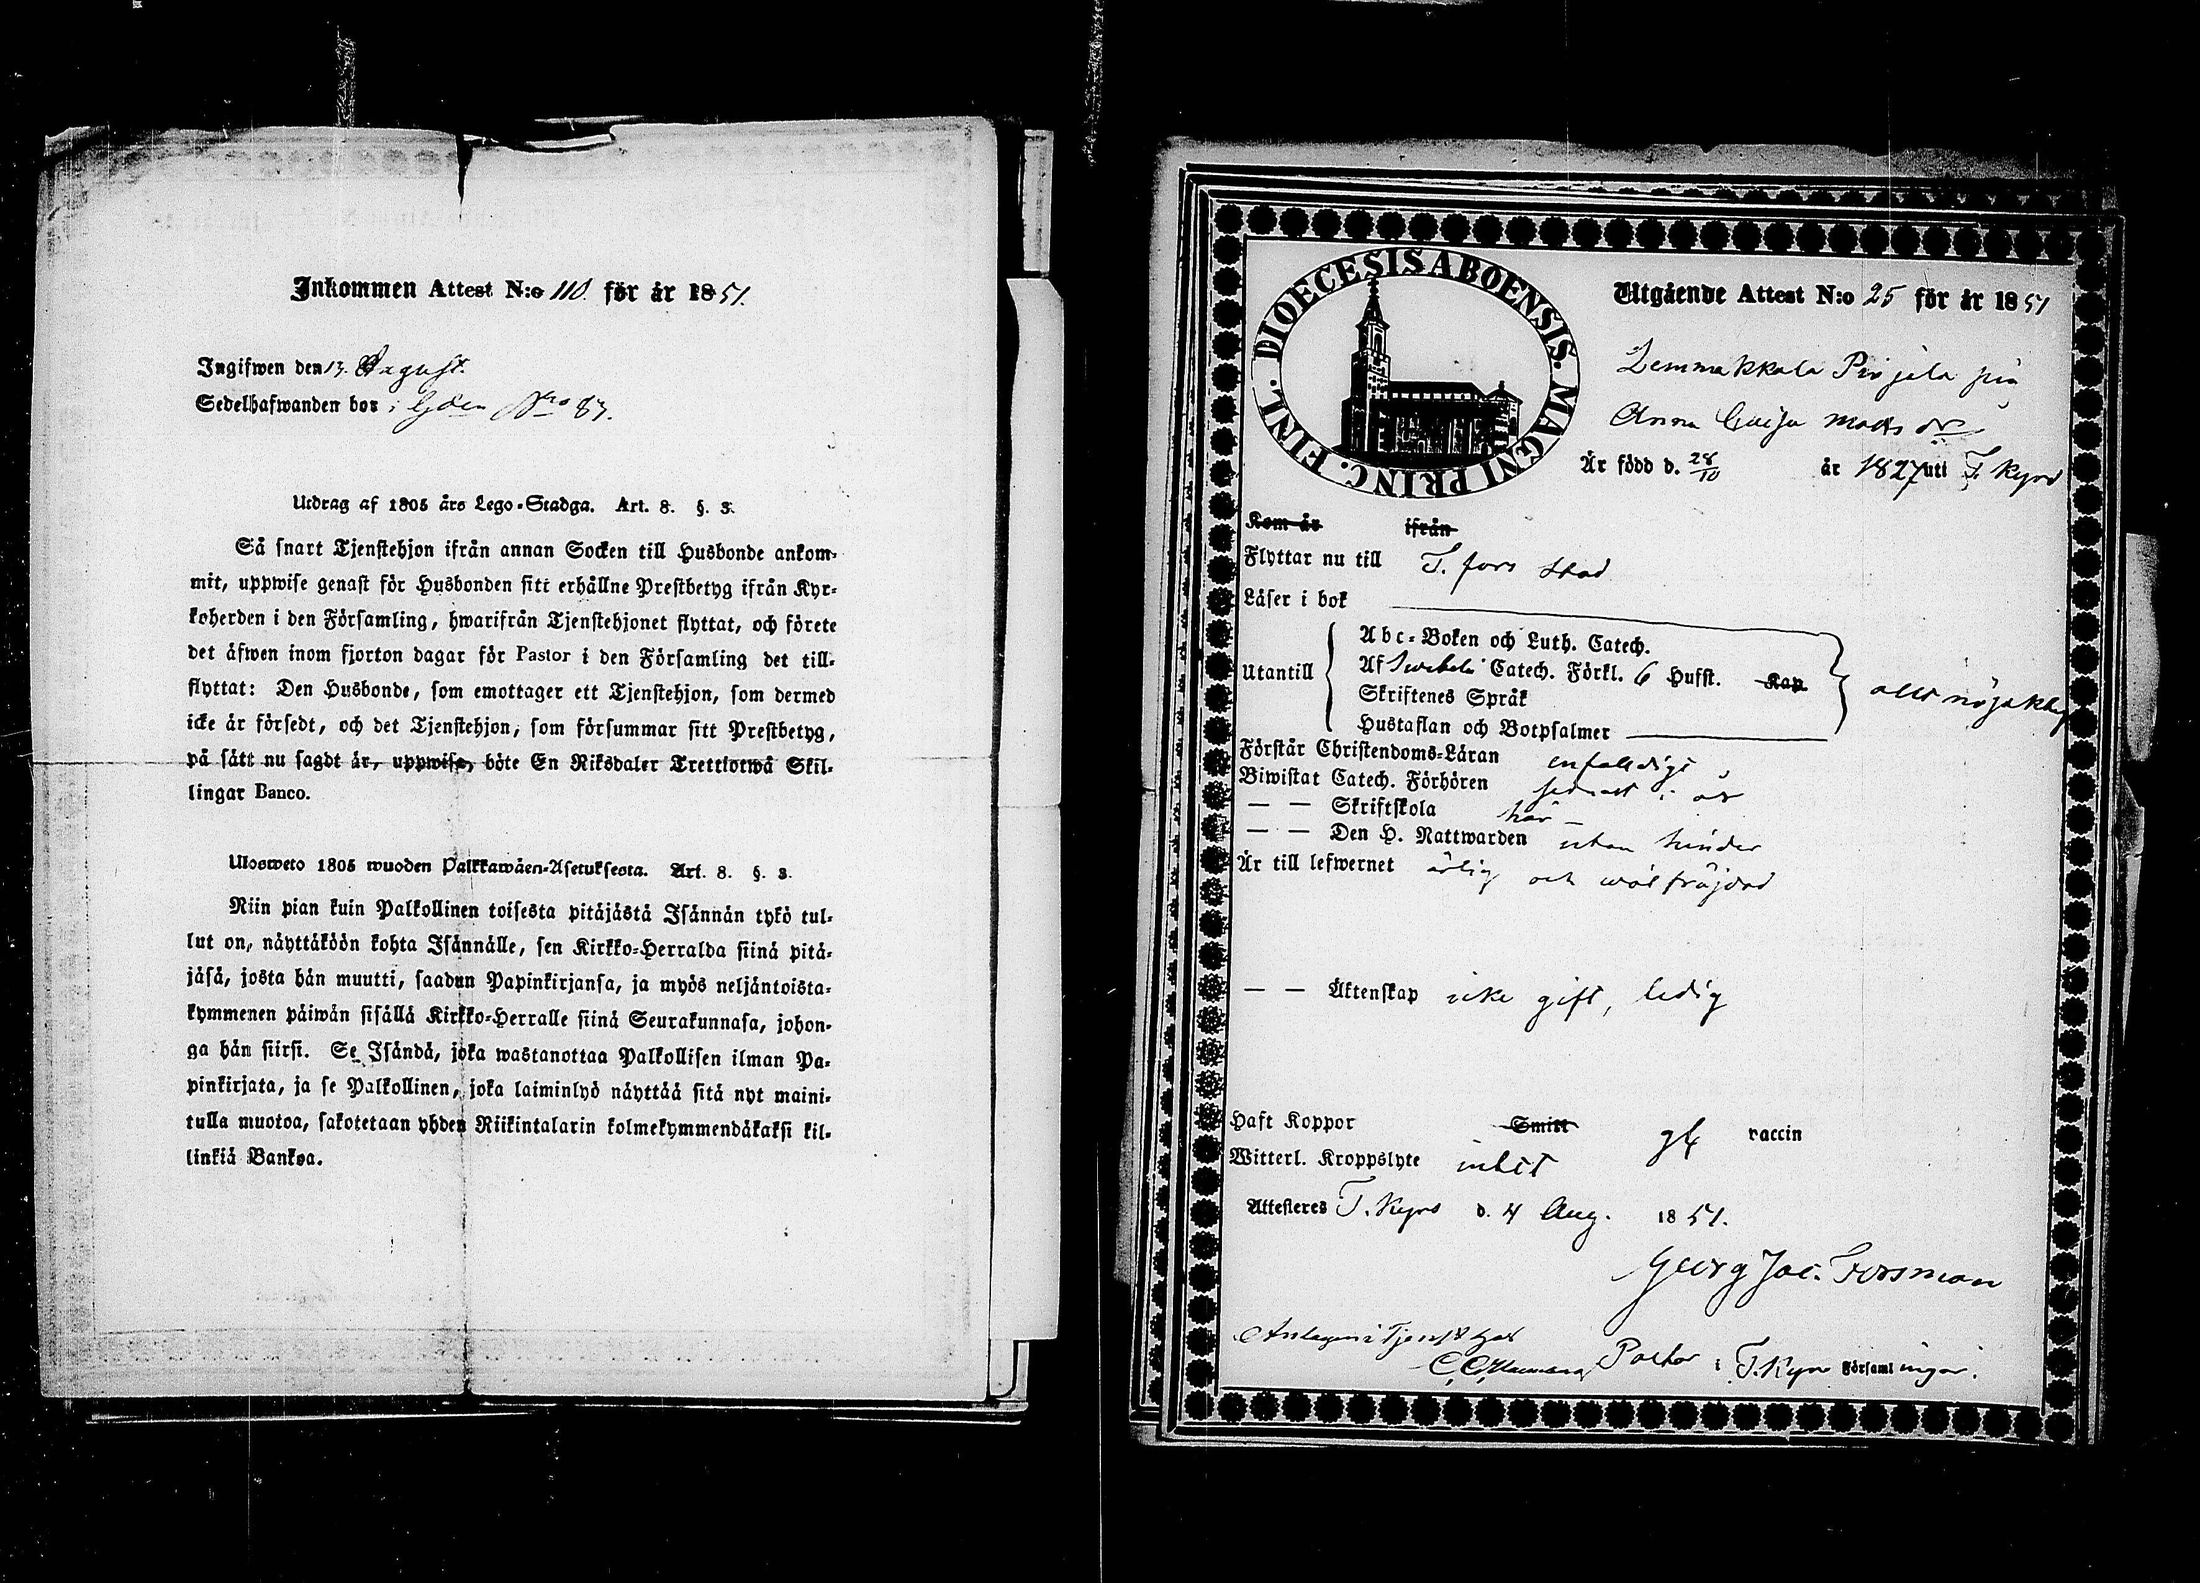 Inkommen Attest N:o 110. för år 1851.
Ingifwen den 13. August.
Sedelhafwanden bor i Gden Nro 87.
Utdrag af 1805 års Lego-Stadga. Art. 8. §. 3.
Så snart Tjenstehjon ifrån annan Socken till Husbonde ankom-
mit, uppwise genast för Husbonden sitt erhållne Prestbetyg ifrån Kyr-
koherden i den Församling, hwarifrån Tjenstehjonet flyttat, och förete
det äfwen inom fjorton dagar för Pastor i den Församling det till-
flyttat: Den Husbonde, som emottager ett Tjenstehjon, som dermed
icke är försedt, och det Tjenstehjon, som försummar sitt Prestbetyg,
på sätt nu sagdt är, uppwisa, böte En Riksdaler Trettiotwå Skil-
lingar Banco.
Ulosweto 1805 wuoden Palkkawäen-Asetuksesta. Art. 8. §. 3.
Niin pian kuin Palkollinen toisesta pitäjästä Isännän tykö tul-
lut on, näyttäköön kohta Isännälle, sen Kirkko-Herralda siinä pitä-
jäsä, josta hän muutti, saadun Papinkirjansa, ja myös neljäntoista-
kymmenen päiwän sisällä Kirkko-Herralle siinä Seurakunnasa, johon-
ga hän siirsi. Se Isändä, joka wastanottaa Palkollisen ilman Pa-
pinkirjata, ja se Palkollinen, joka laiminlyö näyttää sitä nyt maini-
tulla muotoa, sakotetaan yhden Riikintalarin kolmekymmendäkaksi kil-
linkiä Bankoa.
DIOECESIS ABOENSIS. MAGNI PRINC. FINL.
Utgående Attest N:o 25 för år 1851
Lemmakkala Pirjela pig
Anna Caisa Mats dr
Är född d. 28/10 år 1827 uti T. Kyro
Kom år ifrån
Flyttar nu till T. fors stad
Läser i bok
Utantill
Abc-Boken och Luth. Catech.
Af Swebeli Catech. Förkl. 6 Hufst. Kap.
Skriftenes Språk
Hustaflan och Botpsalmer
allt nöjaktig
Förstår Christendoms-Läran enfaldigt
Biwistat Catech. Förhören sednast i år
— — Skriftskola här —
— — Den H. Nattwarden utan hinder
Är till lefwernet ärlig och wälfräjdad
— — Äktenskap icke gift, ledig
Haft Koppor Smitt gt vaccin
Witterl. Kroppslyte intet
Attesteres T. Kyro d. 4 Aug. 1851.
Georg Jac. Forsman
Antagen i Tjenst hos
Pastor i T. Kyro Församlingar.